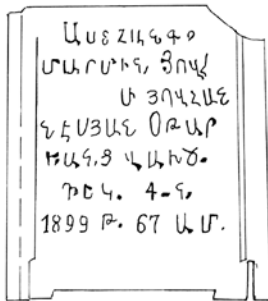 ԱՍՏ ՀԱՆԳՉ
ՄԱՐՄԻՆ, ՅՈՎՀ
Մ ՅՈՎՀԱՆ
ՆԷՍՅԱՆ ՕԹԱՐ
ԿԱՆ,Ց ՎԱԽՃ.
ԴԵԿ. 4-Ն,
1899 Թ. 67 ԱՄ.